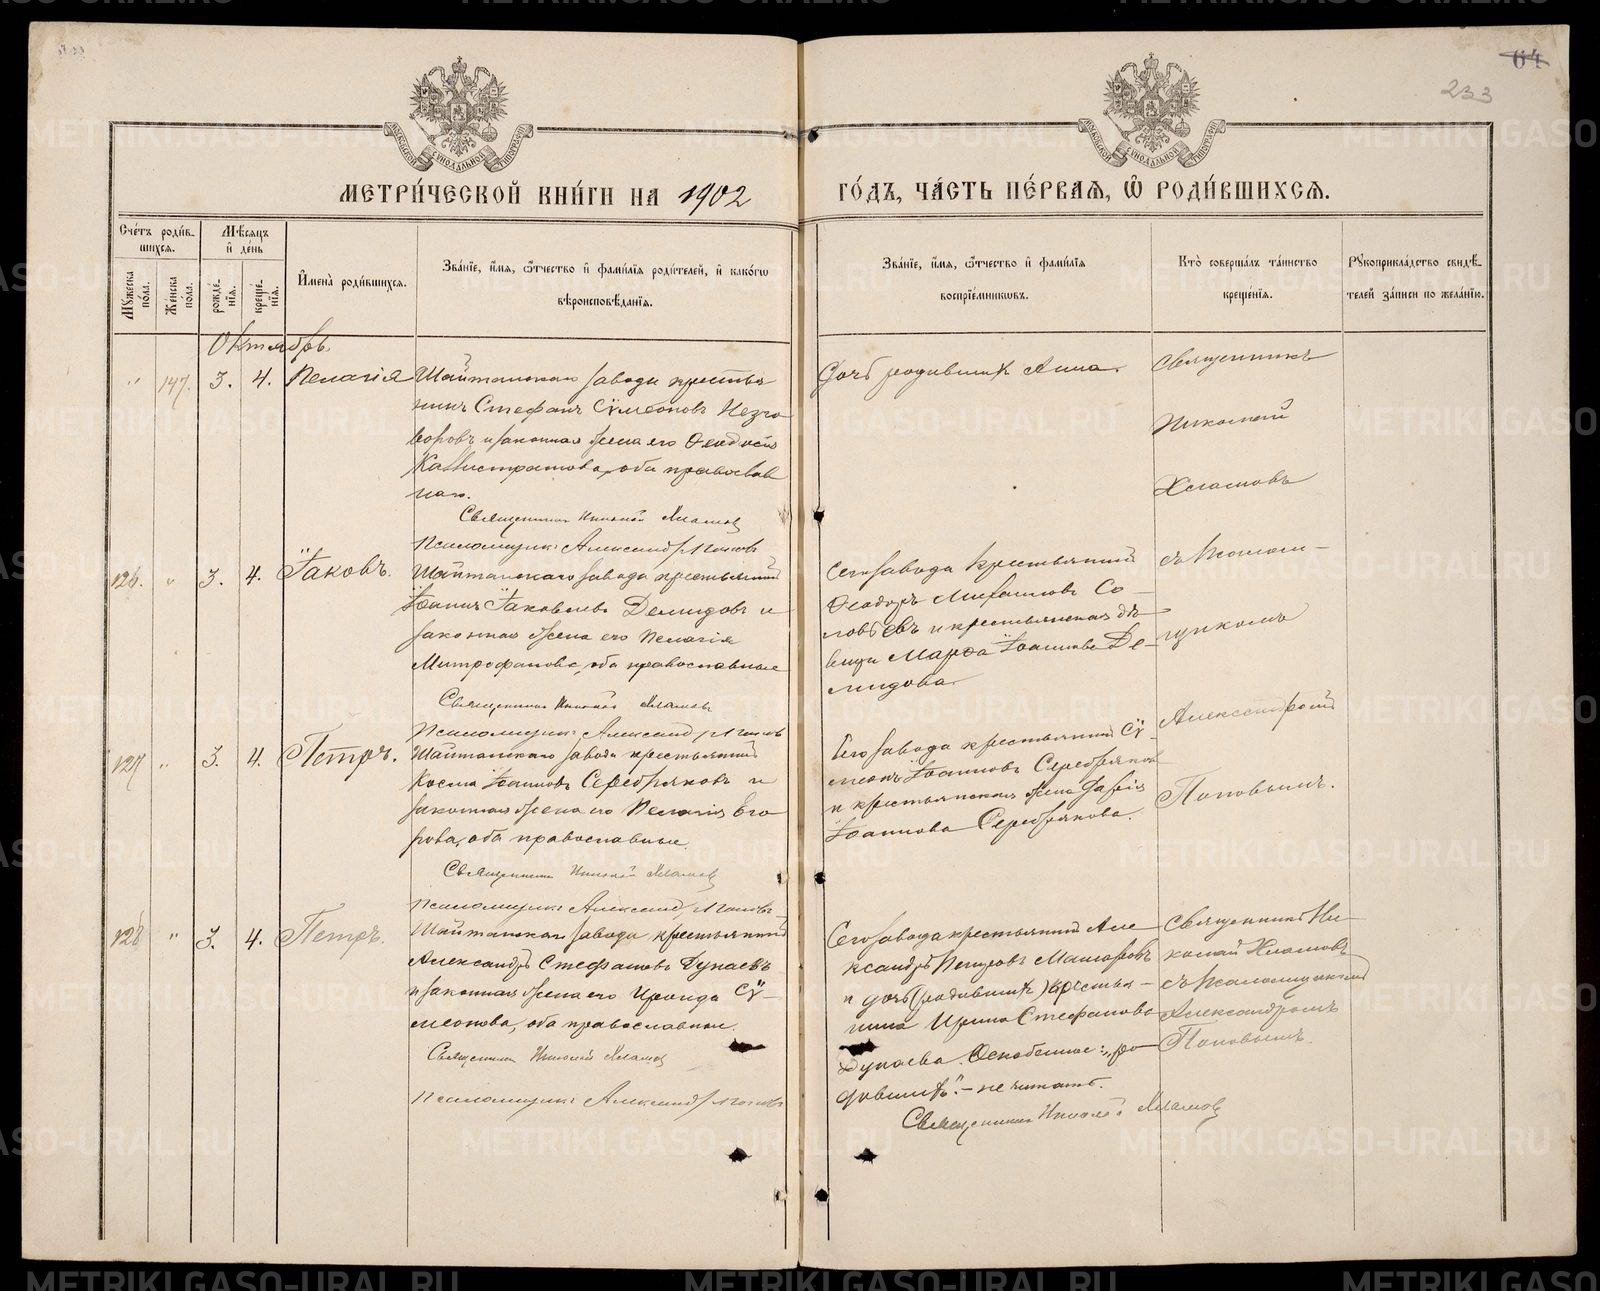 64
233
МОСКОВСКОЙ СѴНОДАЛЬНОЙ ТИПОГРАФІИ
МОСКОВСКОЙ СѴНОДАЛЬНОЙ ТИПОГРАФІИ
МЕТРИ́ЧЕСКОЙ КНИ́ГИ НА 1902
ГО́ДЪ, ЧА́СТЬ ПЕ́РВАѦ, Ѿ РОДИ́ВШИХСѦ.
Сче́тъ роди́в-
шихсѧ.
Мꙋ́жеска по́ла.
Же́нска по́ла.
Мѣ́сѧцъ
и҆ де́нь
рожде́-
нїѧ.
креще́-
нїѧ.
И҆мена̀ роди́вшихсѧ.
Зва́нїе, и҆́мѧ, ѻ҆́тчество и҆ фами́лїѧ роди́телей, и҆ како́гѡ
вѣроисповѣ́данїѧ.
Зва́нїе, и҆́мѧ, ѻ҆́тчество и҆ фами́лїѧ
воспрїе́мникѡвъ.
Кто̀ соверша́лъ та́инство
креще́нїѧ.
Рꙋкоприкла́дство свидѣ́-
телей за́писи по жела́нїю.
Октябрь.
" 147. 3. 4. Пелагія
Шайтанскаго завода крестья
нинъ Стефанъ Сѵмеоновъ Незго
воровъ и законная жена его Ѳеодосія
Каллистратова, оба православ
ные.
Священникъ Николай Хламовъ
Псаломщикъ Александръ Поповъ
Дочь родившихъ Анна.
Священникъ
Николай
Хламовъ
126. " 3. 4. Іаковъ.
Шайтанскаго завода крестьянинъ
Іоаннъ Іаковлевъ Демидовъ и
законная жена его Пелагія
Митрофанова, оба православные
Священникъ Николай Хламовъ
Псаломщикъ Александръ Поповъ
Сего завода крестьянинъ
Ѳеодоръ Михаиловъ Со-
ловьевъ и крестьянская дѣ
вица Марѳа Іоаннова Де-
мидова.
съ Псалом-
щикомъ
127 " 3. 4. Петръ.
Шайтанскаго завода крестьянинъ
Косма Іоанновъ Серебряковъ и
законная жена его Пелагія Его
рова, оба православные.
Священникъ Николай Хламовъ
Псаломщикъ Александръ Поповъ
Сего завода крестьянинъ Сѵ-
меонъ Іоанновъ Серебряковъ
и крестьянская жена
Іоаннова Серебрякова.
Александромъ
Поповымъ.
128 " 3. 4. Петръ.
Шайтанскаго завода крестьянинъ
Александръ Стефановъ Дунаевъ
и законная жена его Ираида Сѵ-
меонова, оба православные.
Священникъ Николай Хламовъ
Псаломщикъ Александръ Поповъ
Сего завода крестьянинъ Але
ксандръ Петровъ
и дочь (родившихъ) крестья-
нина Ирина Стефанова
Дунаева. Оскобленное: „ро-
дившихъ" - не читать.
Священникъ Николай Хламовъ
Священникъ Ни-
колай Хламовъ
съ Псаломщикомъ
Александромъ
Поповымъ.
METRIKI.GASO-URAL.RU